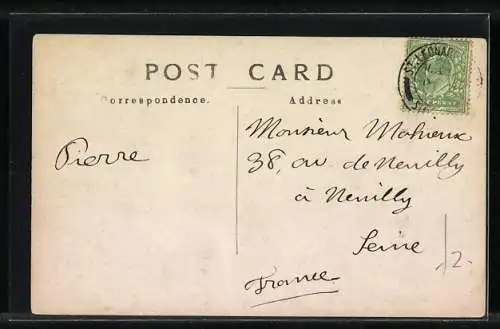 POST CARD
Correspondence.
Address
ST. LEONAR
Pierre
Monsieur Mahieux
38, av de Neuilly
à Neuilly
Seine
France
12.